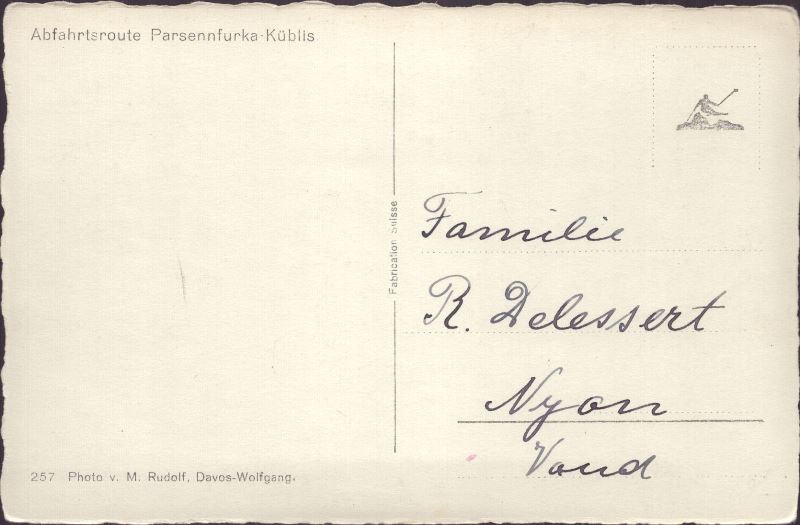 Abfahrtsroute Parsennfurka-Küblis
Fabrication Suisse
Familie
R. Delessert
Nyon
Vaud
257 Photo v. M. Rudolf, Davos-Wolfgang.